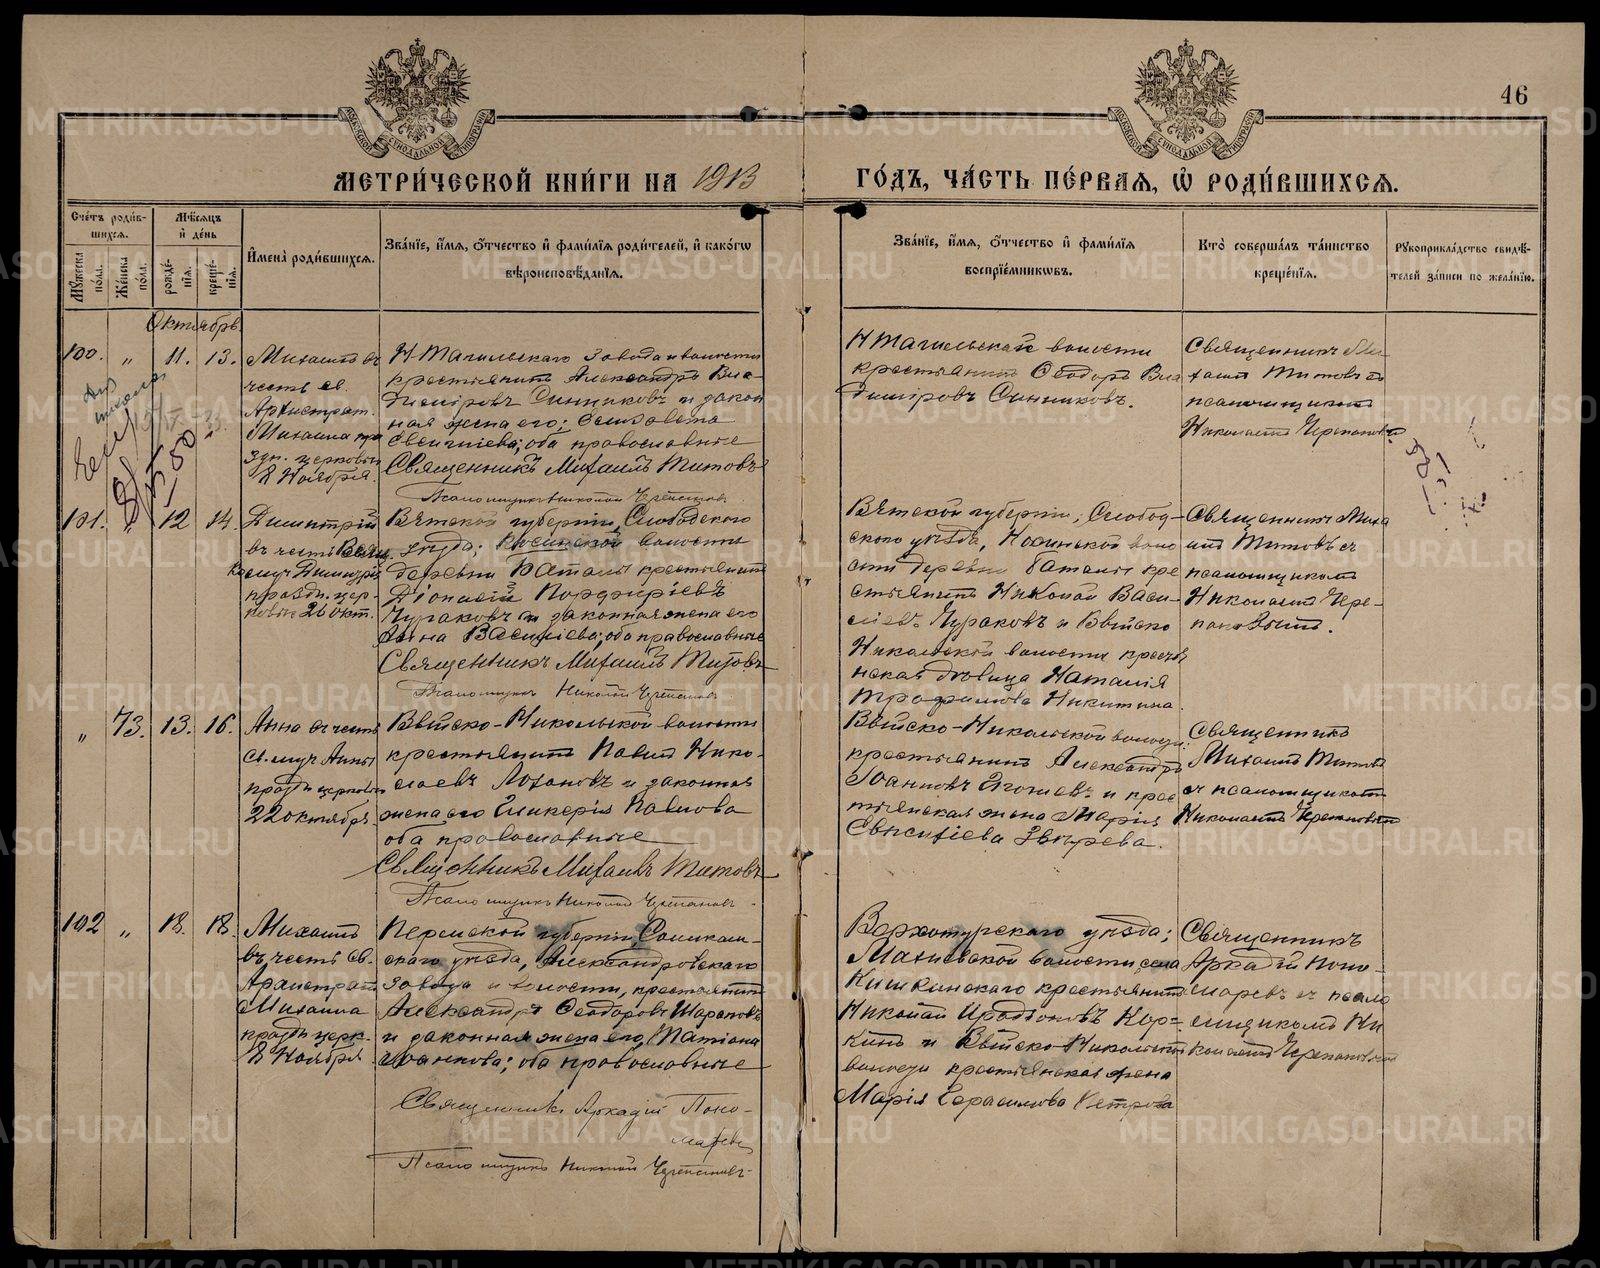 46
МЕТРИ́ЧЕСКОЙ КНИ́ГИ НА 1913 ГО́ДЪ, ЧА́СТЬ ПЕ́РВАЯ, Ѡ҆ РОДИ́ВШИХСЯ.
Сче́тъ роди́в-
шихся.
Мѣ́сяцъ
и҆ де́нь
Мꙋ́жеска по́ла.
Же́нска по́ла.
рожде́-
нїя.
креще́-
нїя.
И҆мена̀ роди́вшихся.
Зва́нїе, и҆́мя, ѻ҆́тчество и҆ фами́лїя роди́телей, и҆ како́гѡ
вѣроисповѣ́данїя.
Зва́нїе, и҆́мя, ѻ҆́тчество и҆ фами́лїя
воспрїе́мникѡвъ.
Кто̀ соверша́лъ та́инство
креще́нїя.
Рꙋкоприкла́дство свидѣ́-
телей за́писи по жела́нїю.
Октябрь
100. „ 11. 13.
Михаилъ въ
честь св.
Архистрат.
Михаила пра
здн. церковью
8 Ноября.
Н-Тагильскаго завода и волости
крестьянинъ Александръ Вла-
диміровъ Синниковъ и закон
ная жена его; Елизавета
Евгеніева; оба православные
Священникъ Михаилъ Титовъ
Псаломщикъ Николай Черепановъ
Н Тагильской волости
крестьянинъ Ѳеодоръ Вла
диміровъ Синниковъ.
Священникъ Ми-
хаилъ Титовъ съ
псаломщикомъ
Николаемъ Черепановы
101. „ 12 14.
Димитрій
въ честь Велик.
муч. Димитрія
праздн. цер-
ковью 26 окт.
Вятской губерніи, Слободского
уѣзда; волости
деревни Баталы крестьянинъ
Діонисій Порфиріевъ
Чураковъ и законная жена его
Анна Василіева; оба православные
Священникъ Михаилъ Титовъ
Псаломщикъ Николай Черепановъ
Вятской губерніи, Слобод-
ского уѣзда, воло
сти деревни Баталы кре
стьянинъ Николай Васи-
ліевъ Чураковъ и Выйско
Никольской волости крестья
нская дѣвица Наталія
Трофимова Никитина.
Священникъ Миха
илъ Титовъ съ
псаломщикомъ
Николаемъ Чере-
пановымъ.
„ 73. 13. 16.
Анна въ честь
св. муч. Анны
праздн церковью
22 октября.
Выйско-Никольской волости
крестьянинъ Павелъ Нико-
лаевъ Лохановъ и законная
жена его Гликерія Павлова
оба православные
Священникъ Михаилъ Титовъ
Псаломщикъ Николай Черепановъ
Выйско-Никольской волости
крестьянинъ Александръ
Іоанновъ и крес
тьянская жена Марія
Евсигніева Звѣрева.
Священникъ
Михаилъ Титовъ
съ псаломщикомъ
Николаемъ Черепановымъ
102 „ 18. 18.
Михаилъ
въ честь св.
Архистрат
Михаила
праздн церк.
8 Ноября
Пермской губерніи, Соликам-
скаго уѣзда, Александровскаго
завода и волости, крестьянинъ
Александръ Ѳеодоровъ Шараповъ
и законная жена его Татіана
Іоаннова; оба православные
Священникъ Аркадій Поно-
маревъ
Псаломщикъ Николай Черепановъ
Верхотурскаго уѣзда;
Махневской волости, села
Кишкинскаго крестьянинъ
Николай Иродіоновъ Кор-
кинъ и Выйско-Никольской
волости крестьянская жена
Марія Герасимова Петрова
Священникъ
Аркадій Поно-
маревъ съ псало
мщикомъ Ни
колаемъ Черепановымъ
METRIKI.GASO-URAL.RU